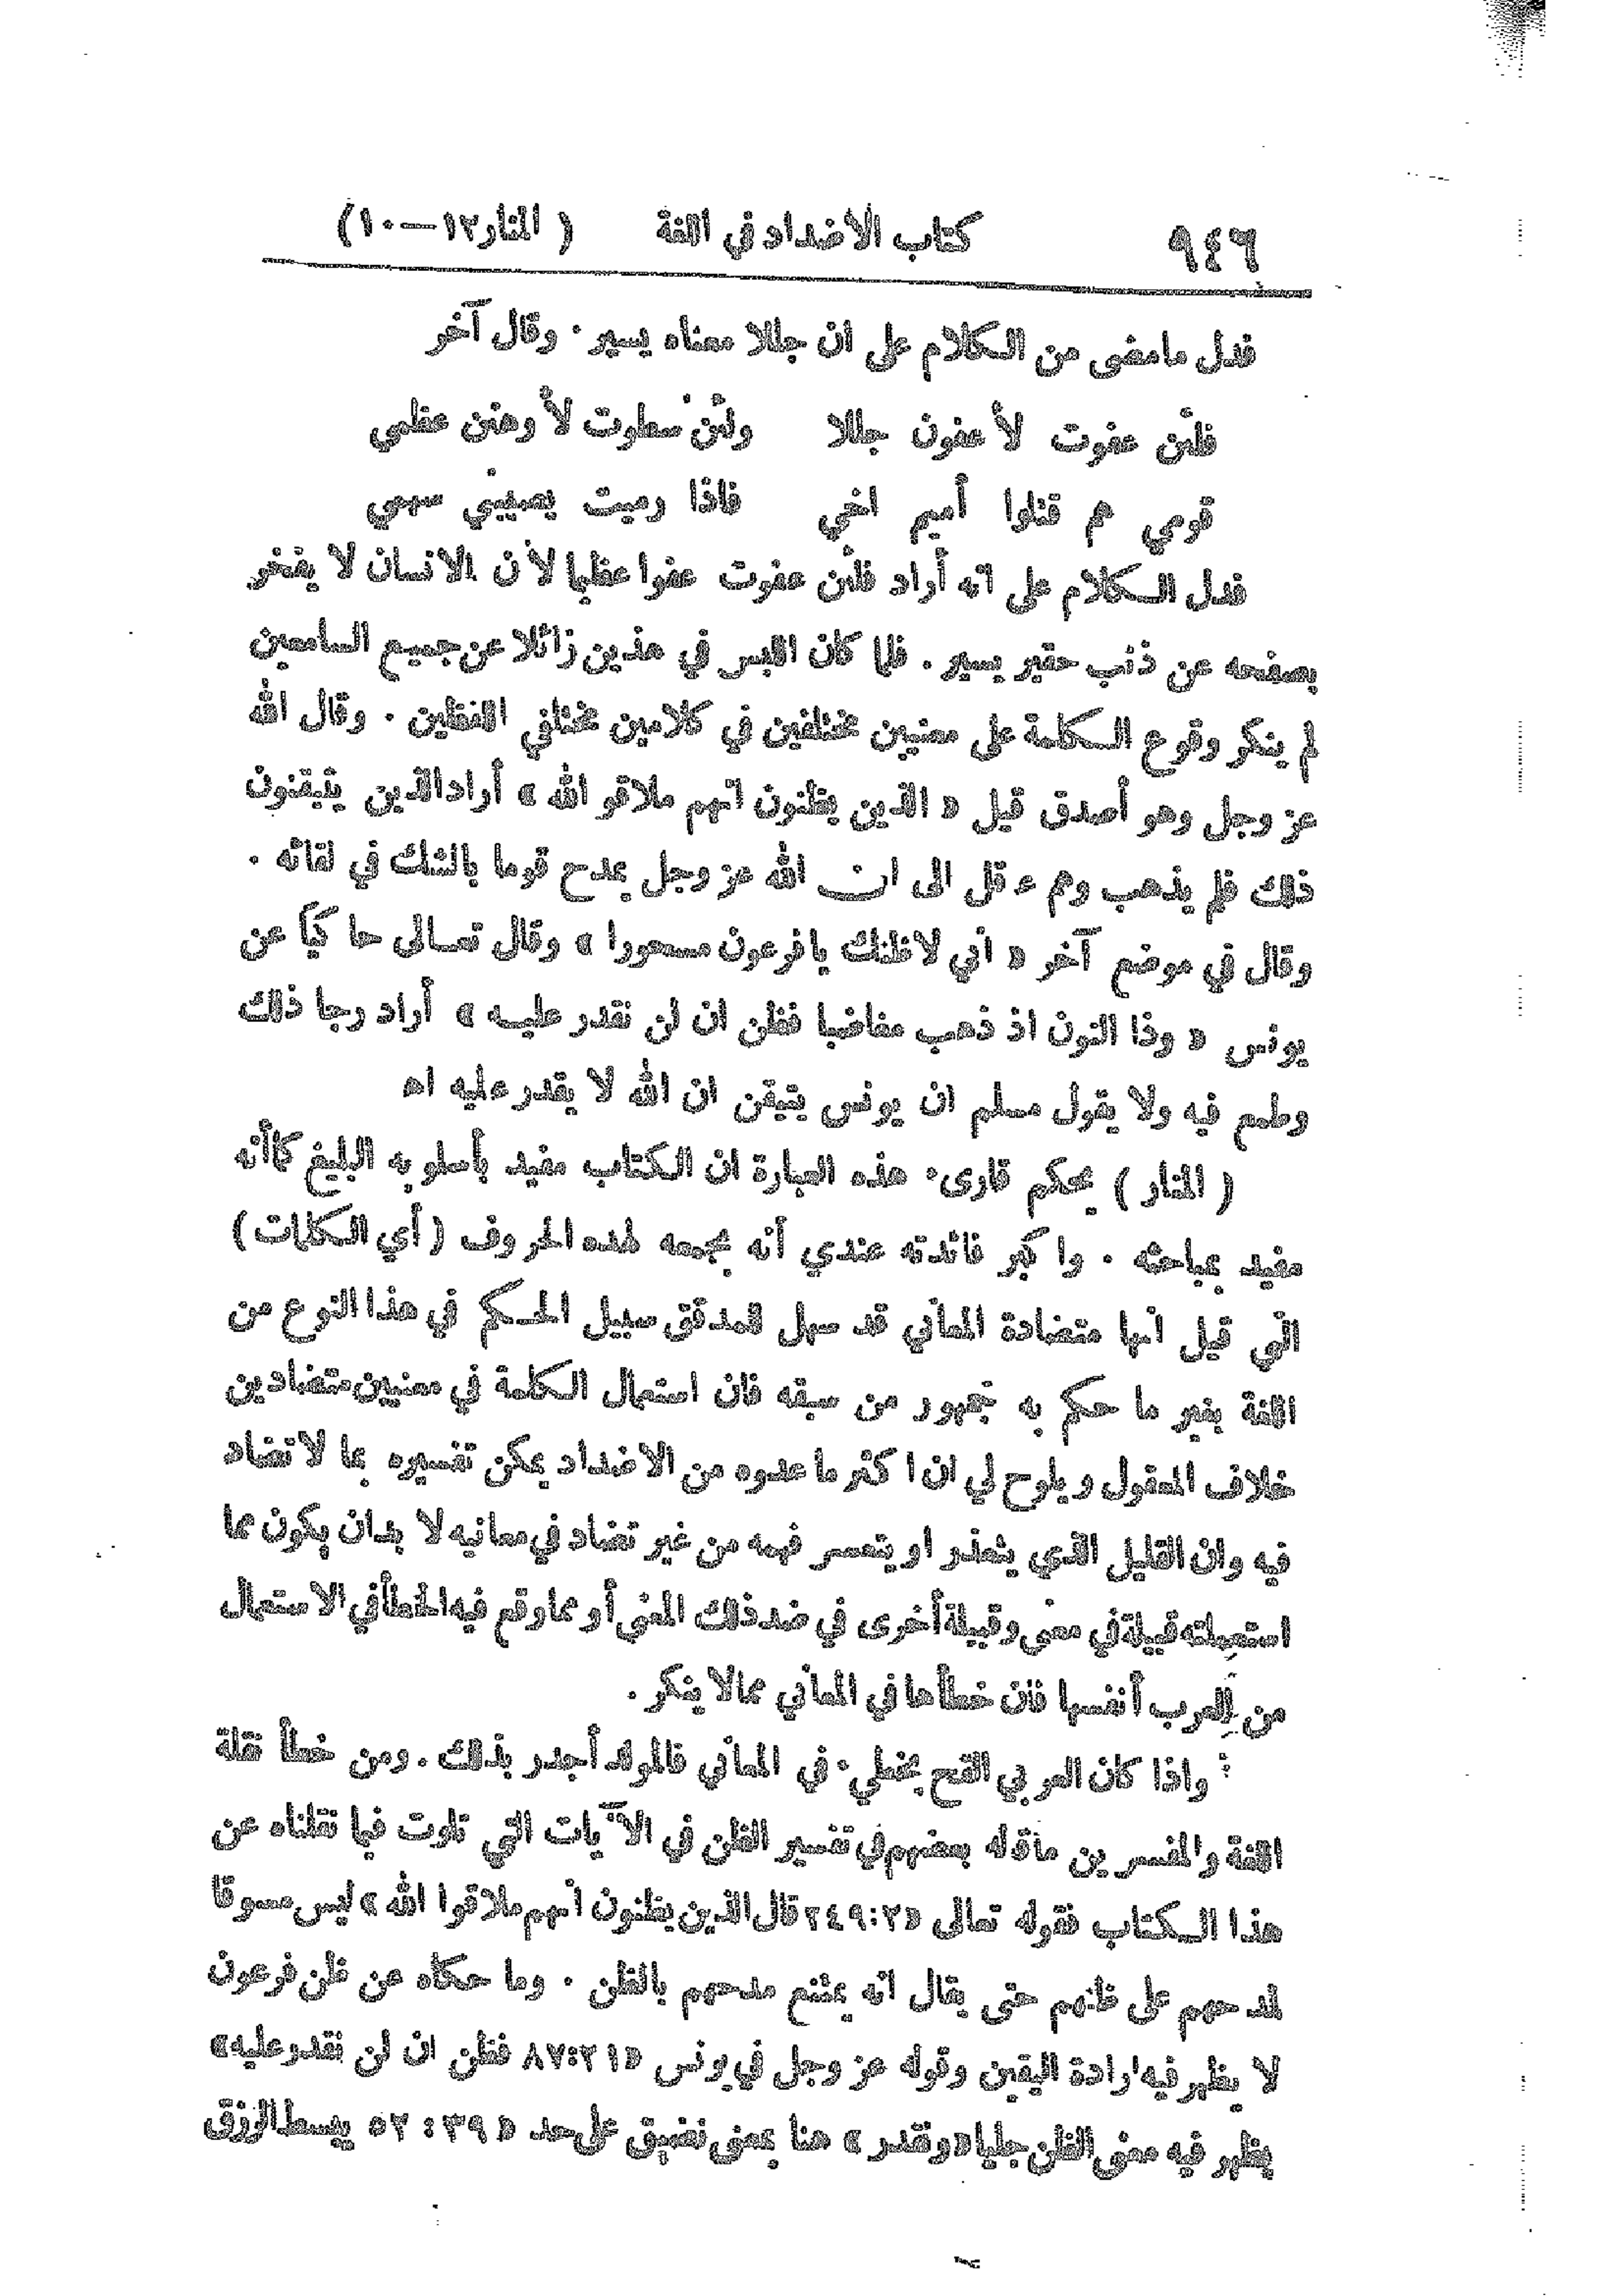 ٩٤٦ كتاب الاضداد في اللغة (المنار ١٢—١٠)
فدل مامضى من الكلام على ان جللا معناه يسير . وقال آخر
فلئن عفوت لأعفون جللا ولئن سطوت لأوهنن عظمي
قومي هم قتلوا أميم اخي فاذا رميت يصيبني سهمي
فدل الكلام على انه أراد فلئن عفوت عفوا عظيما لأن الانسان لا يفخر
بصفحه عن ذنب حقير يسير . فلما كان اللبس في هذين زائلا عن جميع السامعين
لم ينكر وقوع الكلمة على معنيين مختلفين في كلامين مختلفي اللفظين . وقال الله
عز وجل وهو أصدق قيل « الذين يظنون انهم ملاقو الله » أراد الذين يتيقنون
ذلك فلم يذهب وهم عقل الى ان الله عز وجل يمدح قوما بالشك في لقائه .
وقال في موضع آخر « اني لاظنك يا فرعون مسحورا » وقال تعالى حاكيا عن
يونس « وذا النون اذ ذهب مغاضبا فظن ان لن نقدر عليه » أراد رجا ذلك
وطمع فيه ولا يقول مسلم ان يونس يتيقن ان الله لا يقدر عليه اه
( المنار ) يحكم قارئ هذه العبارة ان الكتاب مفيد بأسلوبه البليغ كما أنه
مفيد بمباحثه . واكبر فائدته عندي أنه بجمعه لهذه الحروف ( أي الكلمات )
التي قيل انها متضادة المعاني قد سهل للمدقق سبيل الحكم في هذا النوع من
اللغة بغير ما حكم به جمهور من سبقه فان استعمال الكلمة في معنيين متضادين
خلاف المعقول ويلوح لي ان اكثر ما عدوه من الاضداد يمكن تفسيره بما لا تضاد
فيه وان القليل الذي يتعذر او يتعسر فهمه من غير تضاد في معانيه لا بد ان يكون مما
استعملته قبيلة في معنى وقبيلة أخرى في ضد ذلك المعنى أو مما وقع فيه الخطأ في الاستعمال
من العرب أنفسها فان خطأها في المعاني مما لا ينكر .
واذا كان العربي القح يخطئ في المعاني فالمولد أجدر بذلك . ومن خطأ نقلة
اللغة والمفسرين ما قاله بعضهم في تفسير الظن في الآيات التي تلوت فيما نقلناه عن
هذا الكتاب فقوله تعالى « ٢:٢٤٩ قال الذين يظنون انهم ملاقوا الله » ليس مسوقا
لمدحهم على ظنهم حتى يقال انه يمتنع مدحهم بالظن . وما حكاه عن ظن فرعون
لا يظهر فيه ارادة اليقين وقوله عز وجل في يونس « ٢١:٨٧ فظن ان لن نقدر عليه »
يظهر فيه معنى الظن جليا « ونقدر » هنا بمعنى نضيق على حد « ٣٩ : ٥٢ يبسط الرزق